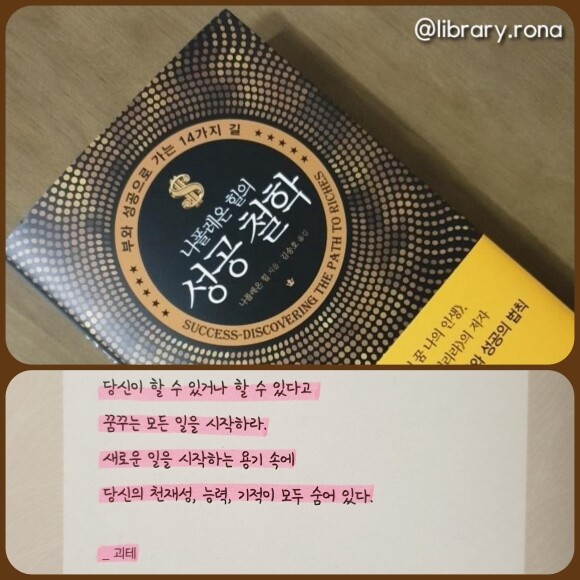 @library.rona
부와 성공으로 가는 14가지 길
나폴레온 힐의
성공 철학
나폴레온 힐 지음 김송호 옮김
SUCCESS-DISCOVERING THE PATH TO RICHES
꿈 나의 인생》,
의 저자
성공의 법칙
당신이 할 수 있거나 할 수 있다고
꿈꾸는 모든 일을 시작하라.
새로운 일을 시작하는 용기 속에
당신의 천재성, 능력, 기적이 모두 숨어 있다.
_ 괴테